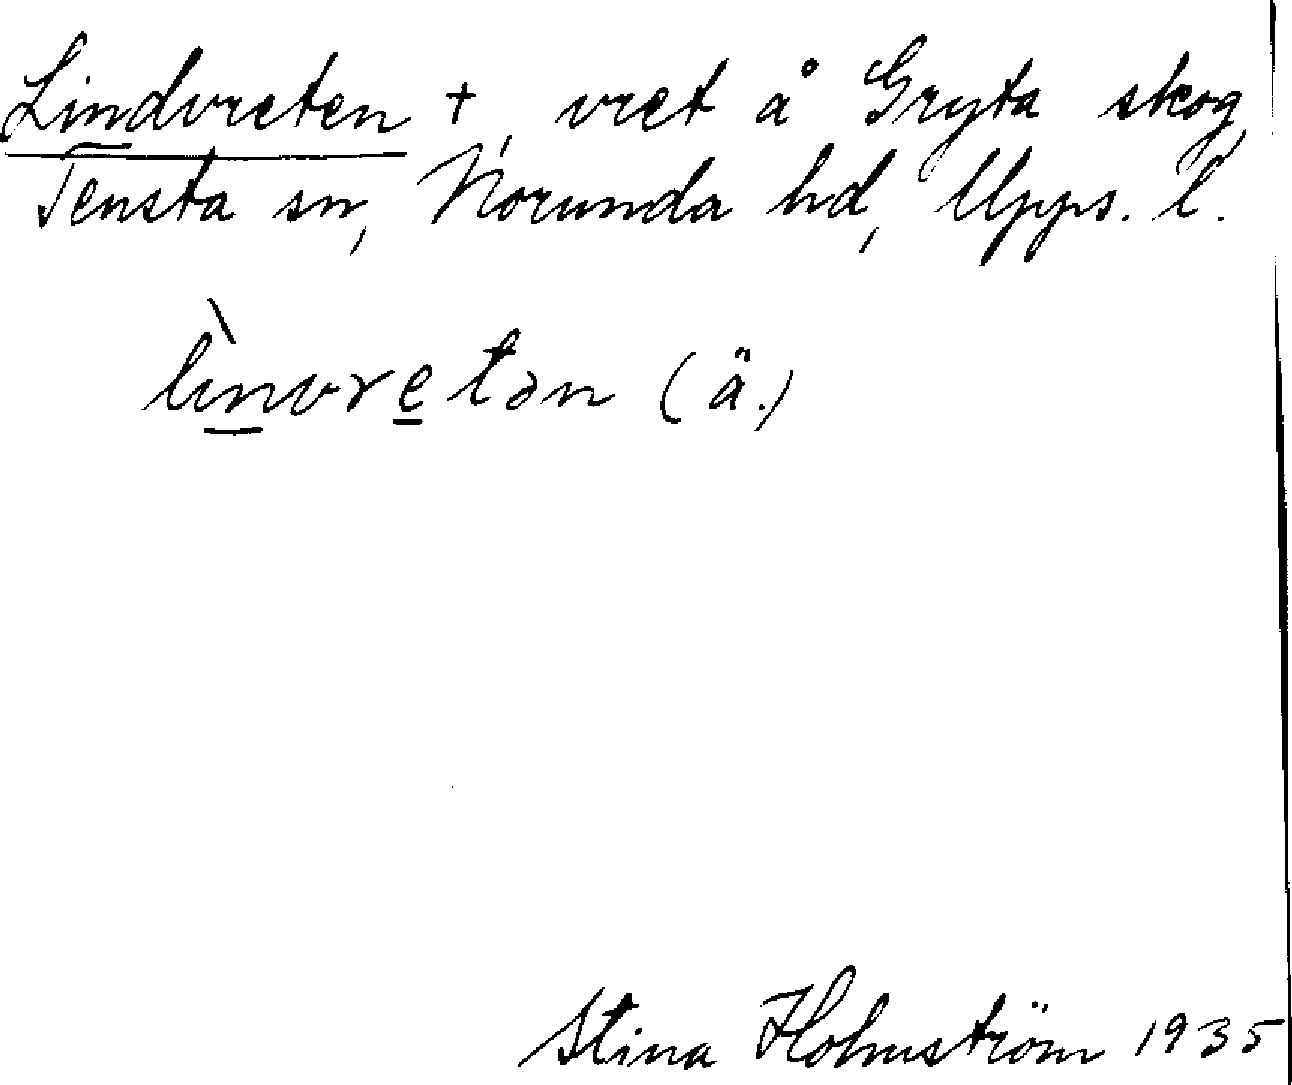 Lindvreten +, vret å Gryta skog,
Tensta sn, Norunda hd, Upps. l.
lìnvretən (ä.)
Stina Holmström 1935